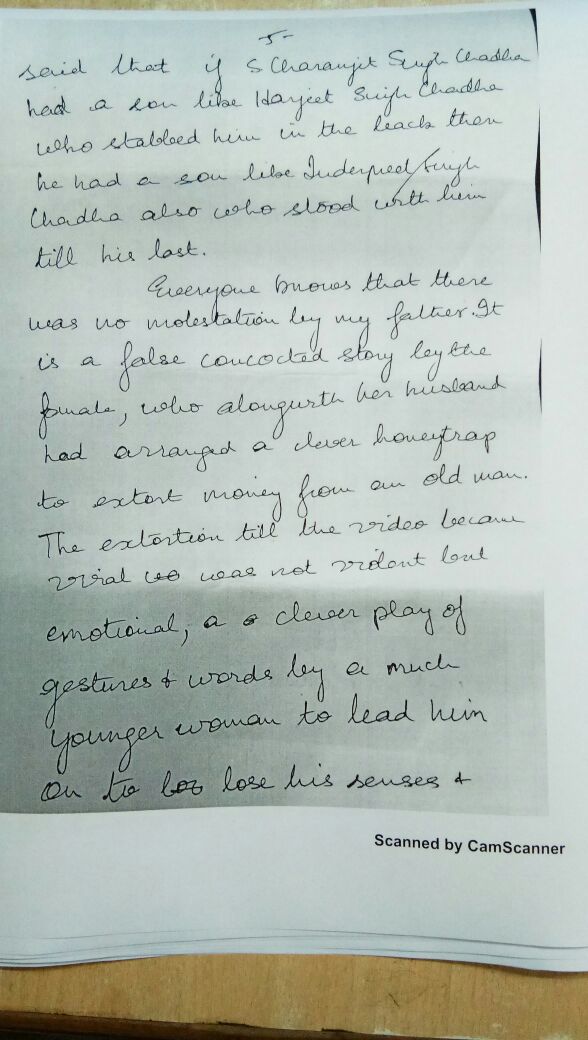 5-
said that if S Charanjit Singh Chadha
had a son like Harjeet Singh Chadha
who stabbed him in the back then
he had a son like Inderpreet Singh
Chadha also who stood with him
till his last.
Everyone knows that there
was no molestation by my father. It
is a false concocted story by the
female, who alongwith her husband
had arranged a clever honeytrap
to extort money from an old man.
The extortion till the video became
viral wo was not violent but
emotional, a clever play of
gestures & words by a much
younger woman to lead him
on to lose his senses &
Scanned by CamScanner